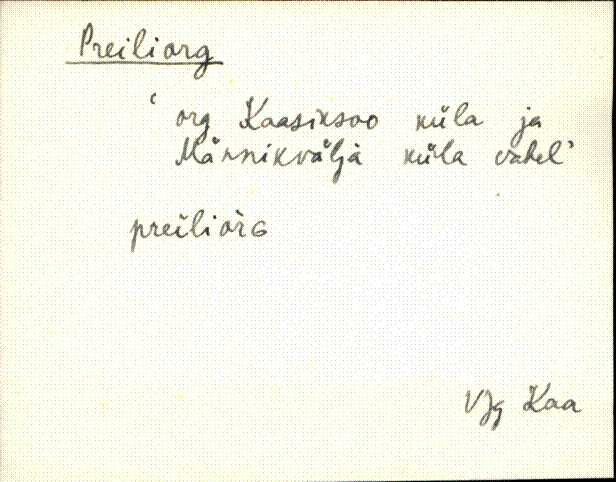 Preiliorg
‘ org Kaasiksoo küla ja
Männikvälja küla vahel’
preiliòrG
VJg Kaa